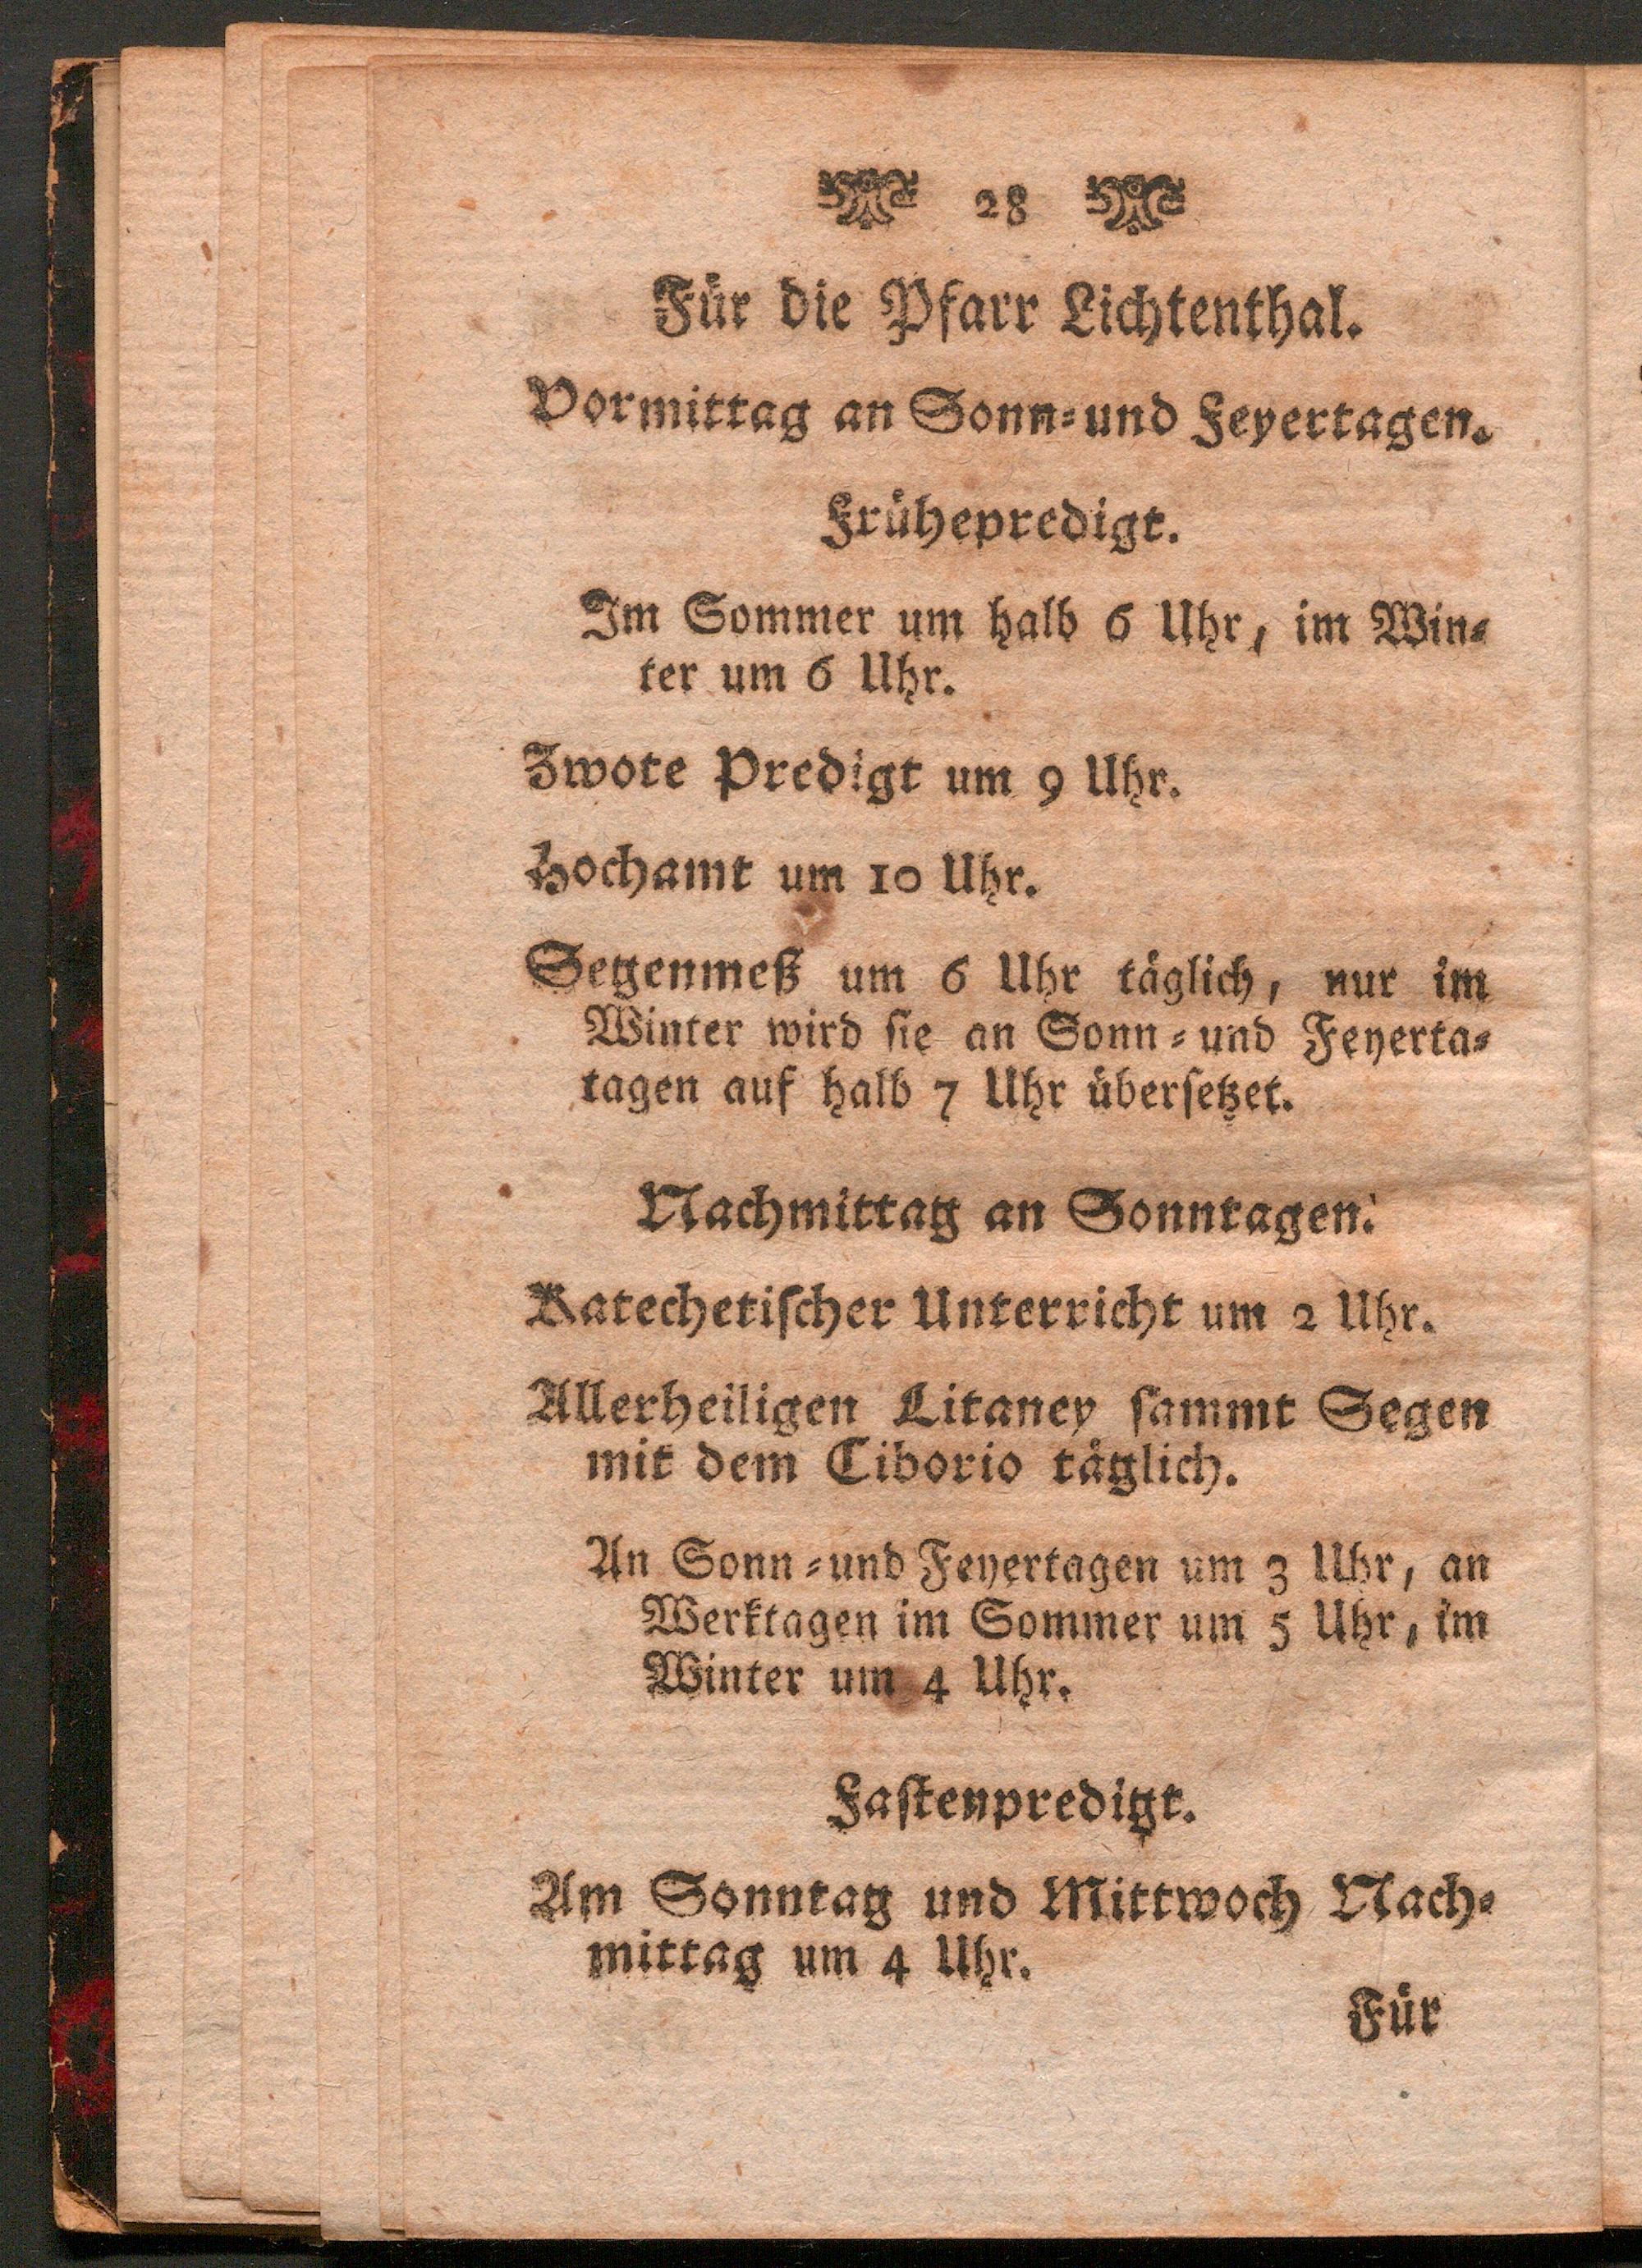 28
Für die Pfarr Lichtenthal.
Vormittag an Sonn-und Feyertagen.
Frühepredigt.
Im Sommer um halb 6 Uhr, im Win-
ter um 6 Uhr.
Zwote Predigt um 9 Uhr.
Hochamt um 10 Uhr.
Segenmeß um 6 Uhr täglich, nur im
Winter wird sie an Sonn- und Feyerta-
tagen auf halb 7 Uhr übersetzet.
Nachmittag an Sonntagen.
Katechetischer Unterricht um 2 Uhr.
Allerheiligen Litaney sammt Segen
mit dem Ciborio täglich.
An Sonn-und Feyertagen um 3 Uhr, an
Werktagen im Sommer um 5 Uhr, im
Winter um 4 Uhr.
Fastenpredigt.
Am Sonntag und Mittwoch Nach-
mittag um 4 Uhr.
Für